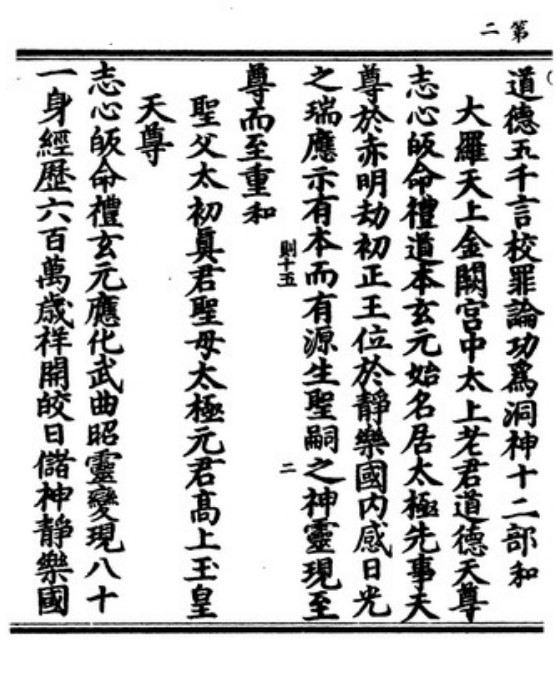 第二
道德五千言校罪論功爲洞神十二部和
大羅天上金闕宮中太上老君道德天尊
志心皈命禮道本玄元始名居太極先事天
尊於赤明劫初正王位於靜樂國内感日光
之瑞應示有本而有源生聖嗣之神靈現至
則十五
二
尊而至重和
聖父太初眞君聖母太極元君髙上玉皇
天尊
志心皈命禮玄元應化武曲昭靈變現八十
一身經歷六百萬歲祥開皎日儲神靜樂國